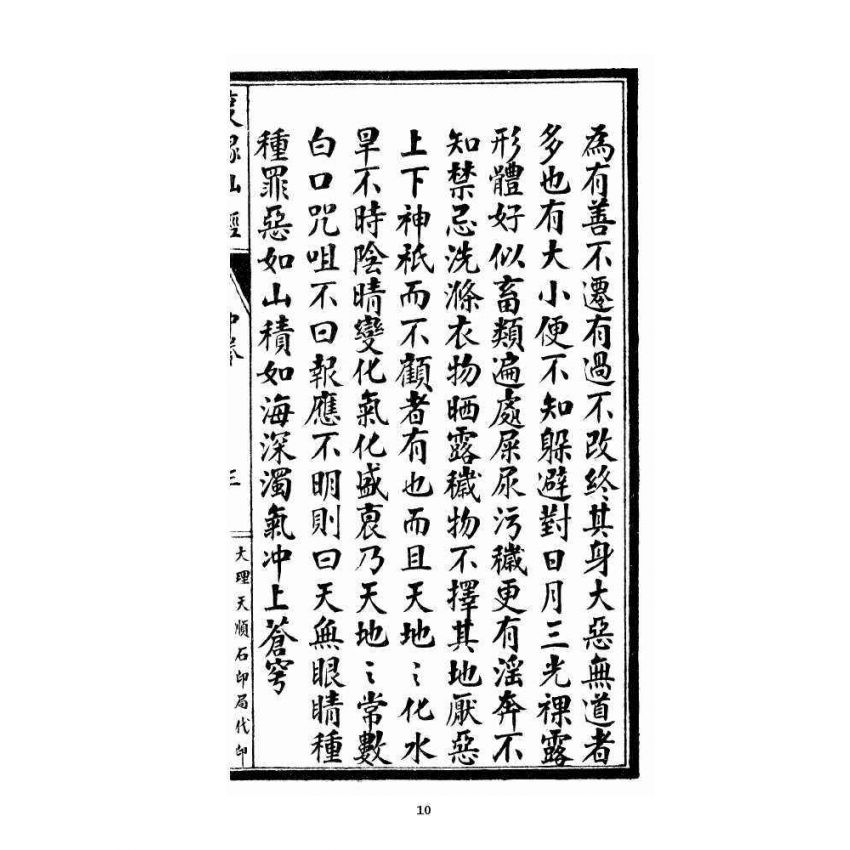 為有善不遷有過不改終其身大惡無道者
多也有大小便不知躲避對日月三光裸露
形體好似畜類遍處屎尿污穢更有滛奔不
知禁忌洗滌衣物晒露穢物不擇其地厭惡
上下神祇而不顧者有也而且天地〻化水
旱不時陰晴變化氣化盛衰乃天地〻常數
白口咒咀不曰報應不明則曰天無眼睛種
種罪惡如山積如海深濁氣冲上蒼穹
仙經
中卷
三
大理天順石印局代印
10